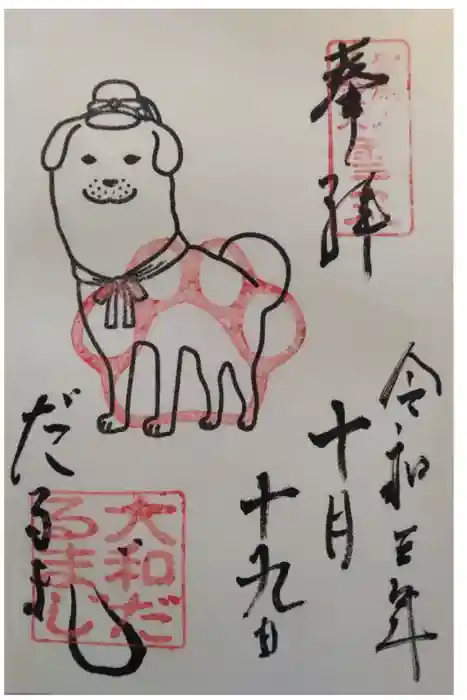 奉拝
令和三年
十月
十九日
だるま寺
大和だ
るまじ